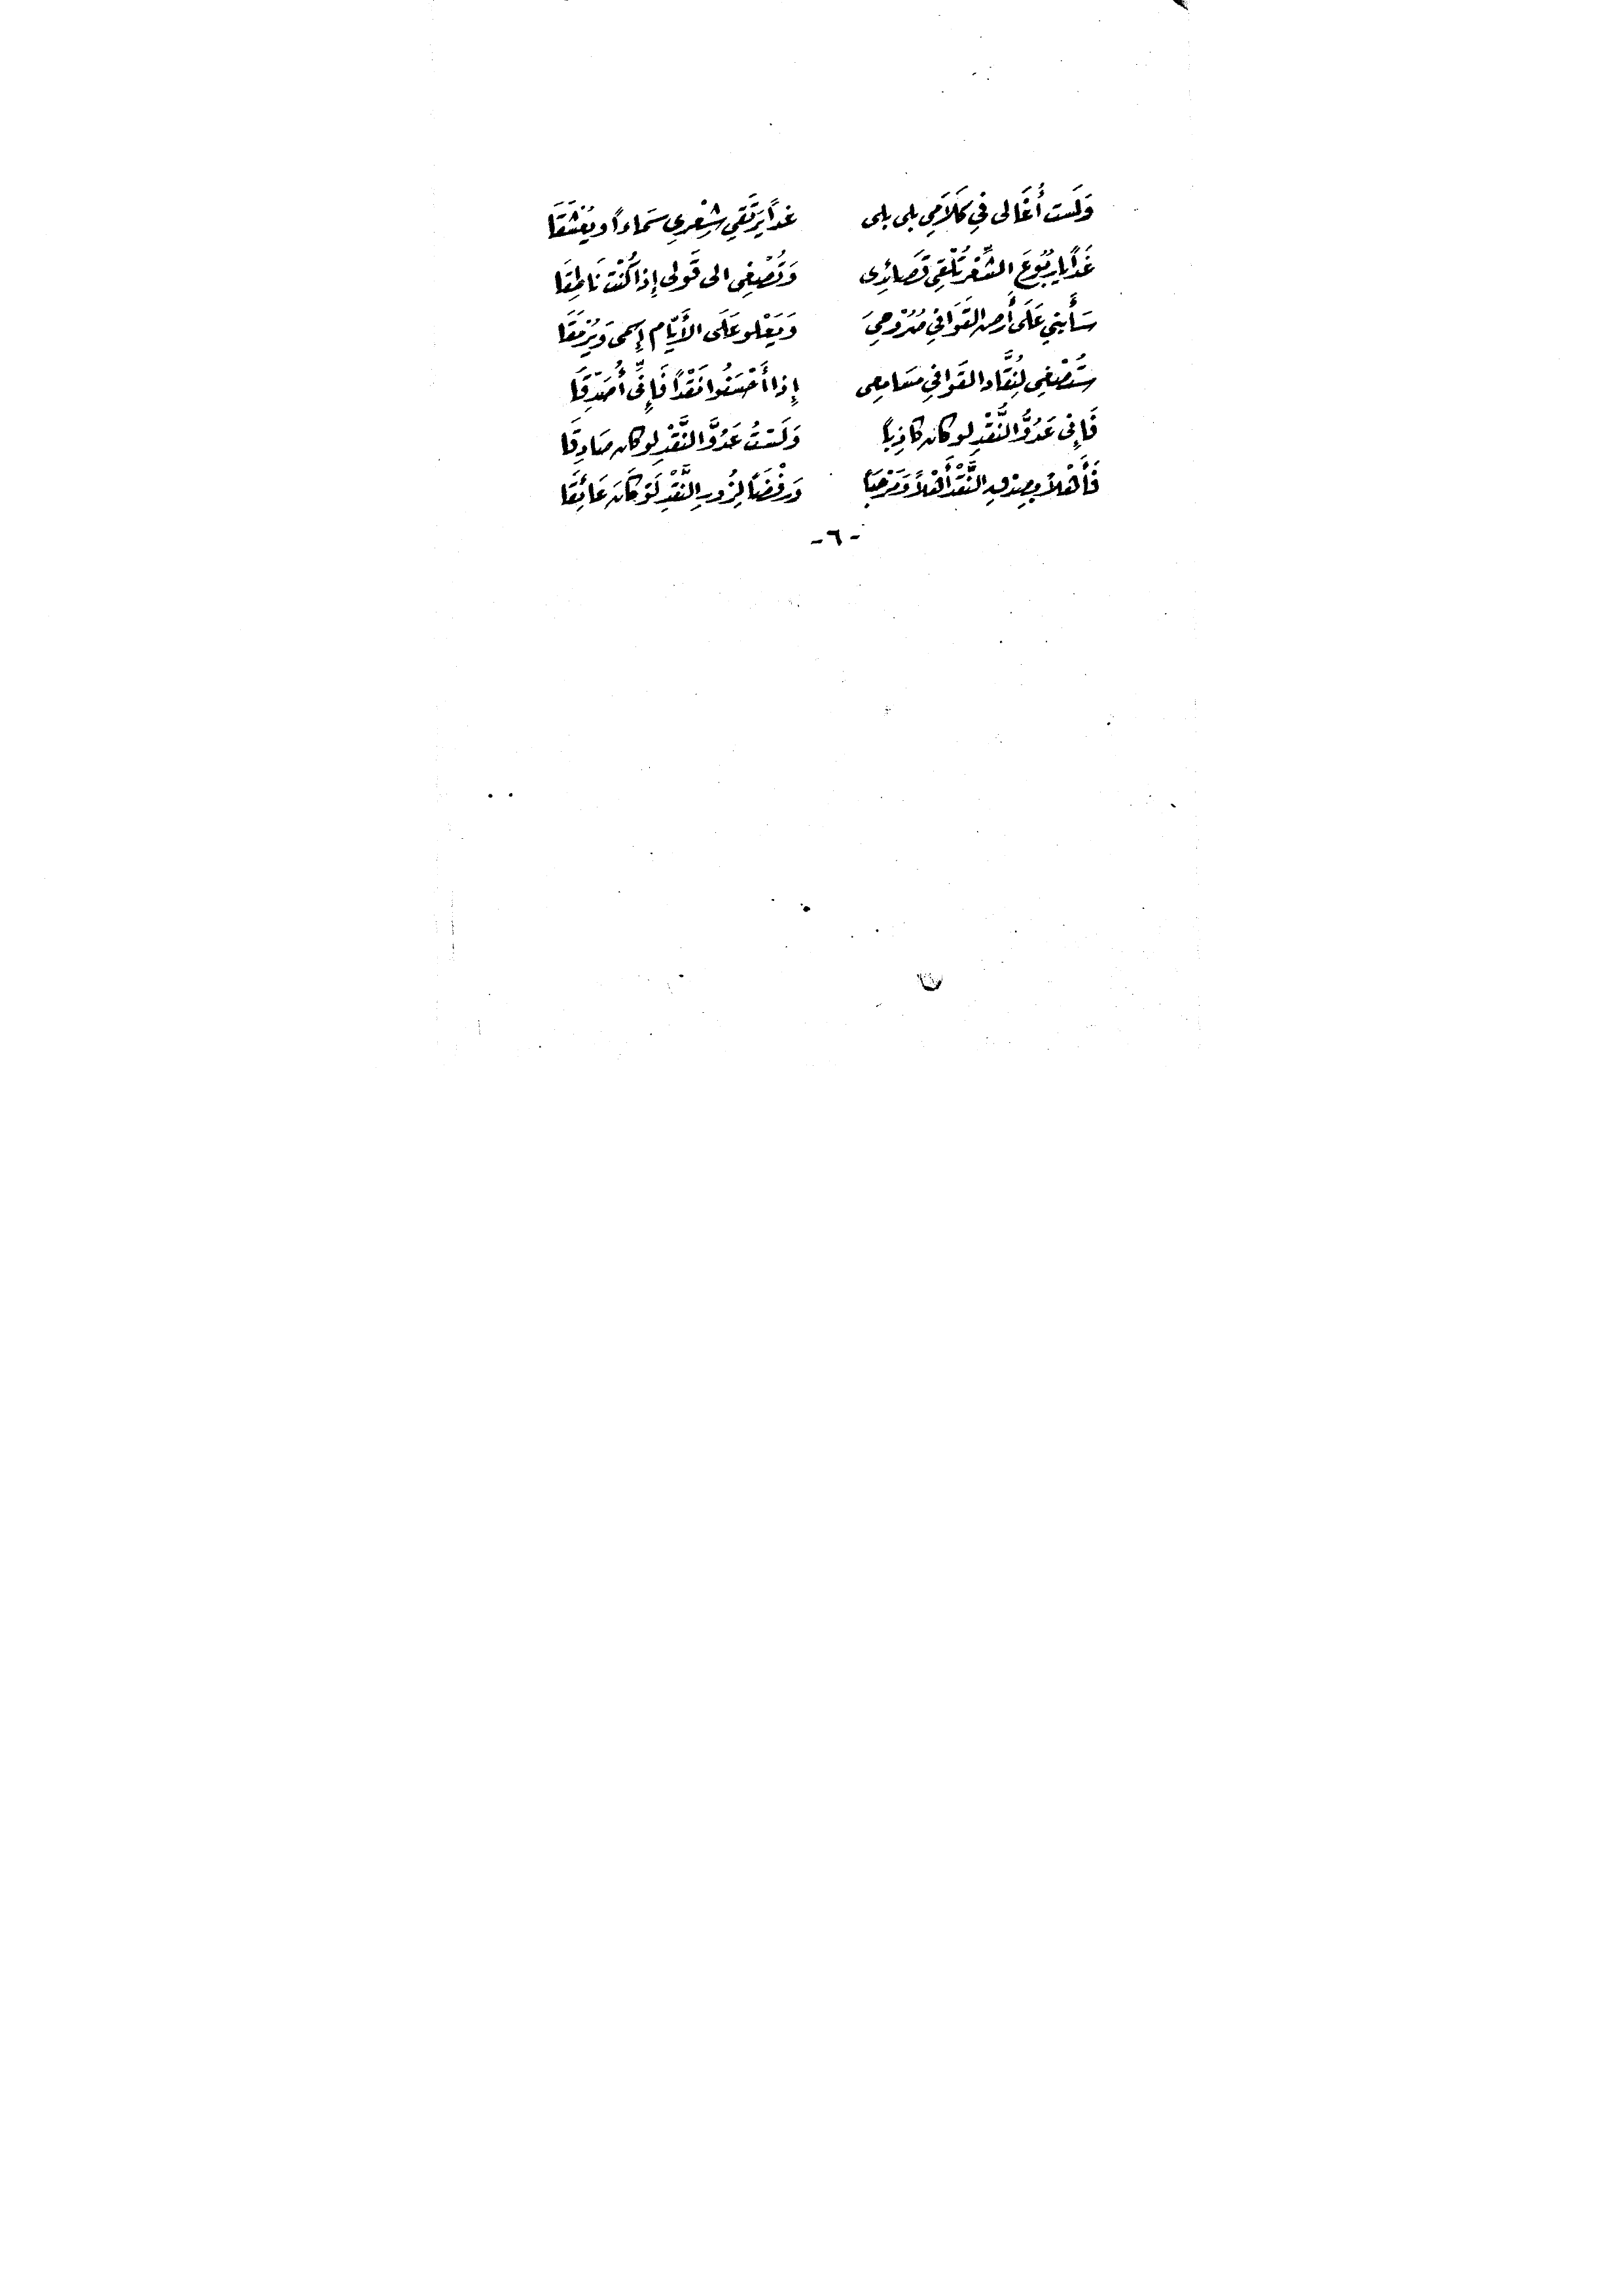 وَلَست أُغَالى فِي كَلَامِي بلى بلى غداً يَرتَقِي شِعْرِي سَماءاً ويُعْشَقَا
غَداً يا رُبُوعَ الشِّعْرِ تُلْقِى قَصَائدِى وَتُصْغِى الى قَولى إِذا كُنْت نَاطِقَا
سَأَبنِي عَلَى أَرض القَوَافِي صُرُوحِيَ وَيَعْلو عَلَى الأَيَّام إِسمى وَيُرْمَقَا
سَتُصْغِى لِنُقَّاد القَوَافِي مسَامعِى إِذا أَحْسَنُوا نَقْداً فَإِنِّى أُصَدِّقَا
فَإِنى عَدُوُّ النَّقْدِ لو كان كاذِباً وَلَستُ عَدُوَّ النَّقْدِ لو كان صَادِقَا
فَأَهْلاً بِصِدْقِ النَّقْدِ أَهْلاً وَمَرْحَباً وَرفْضَاً لِزُورِ النَّقْدِ لَوْ كَانَ عَائِقَا
- ٦ -